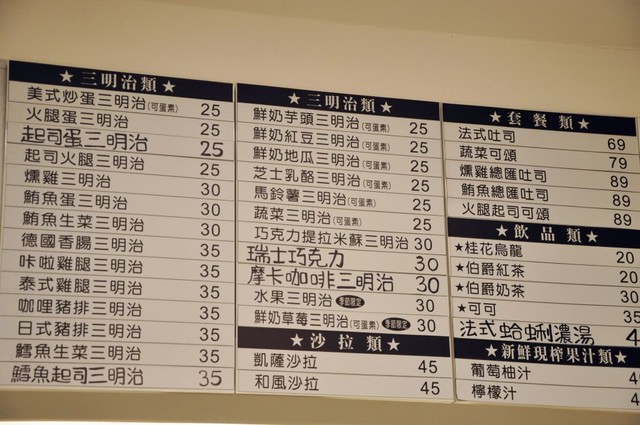 ★三明治類★
美式炒蛋三明治(可蛋素) 25
火腿蛋三明治 25
起司蛋三明治 25
起司火腿三明治 25
燻雞三明治 30
鮪魚蛋三明治 30
鮪魚生菜三明治 30
德國香腸三明治 35
咔啦雞腿三明治 35
泰式雞腿三明治 35
咖哩豬排三明治 35
日式豬排三明治 35
鱈魚生菜三明治 35
鱈魚起司三明治 35
★三明治類★
鮮奶芋頭三明治(可蛋素) 25
鮮奶紅豆三明治(可蛋素) 25
鮮奶地瓜三明治(可蛋素) 25
芝士乳酪三明治(可蛋素) 25
馬鈴薯三明治(可蛋素) 25
蔬菜三明治(可蛋素) 25
巧克力提拉米蘇三明治 30
瑞士巧克力 30
摩卡咖啡三明治 30
水果三明治 季節限定 30
鮮奶草莓三明治(可蛋素) 季節限定 30
★沙拉類★
凱薩沙拉 45
和風沙拉 45
★套餐類★
法式吐司 69
蔬菜可頌 79
燻雞總匯吐司 89
鮪魚總匯吐司 89
火腿起司可頌 89
★飲品類★
★桂花烏龍 20
★伯爵紅茶 20
★伯爵奶茶 30
★可可 35
法式蛤蜊濃湯 4
★新鮮現榨果汁類★
葡萄柚汁 4
檸檬汁 4